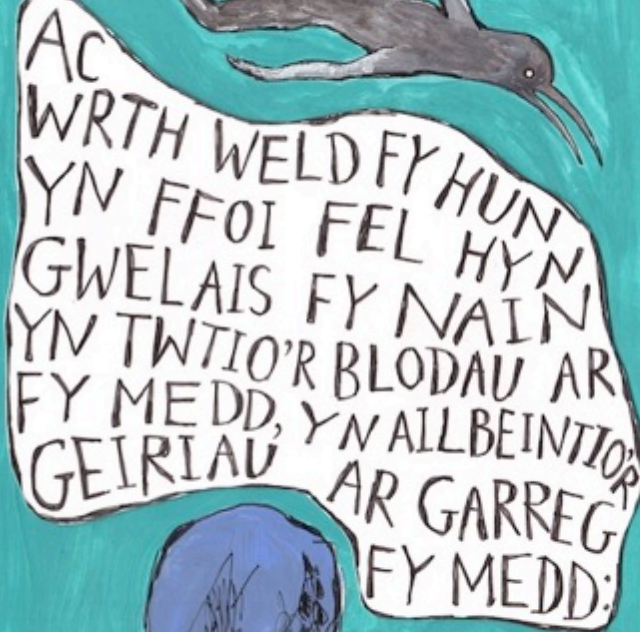 AC
WRTH WELD FY HUN
YN FFOI FEL HYN
GWELAIS FY NAIN
YN TWTIO'R BLODAU AR
FY MEDD, YN AILBEINTIO'R
GEIRIAU AR GARREG
FY MEDD: